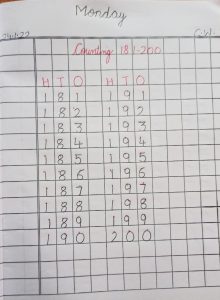 Monday
C.W
Counting 181-200
H T O H T O
1 8 1 1 9 1
1 8 2 1 9 2
1 8 3 1 9 3
1 8 4 1 9 4
1 8 5 1 9 5
1 8 6 1 9 6
1 8 7 1 9 7
1 8 8 1 9 8
1 8 9 1 9 9
1 9 0 2 0 0